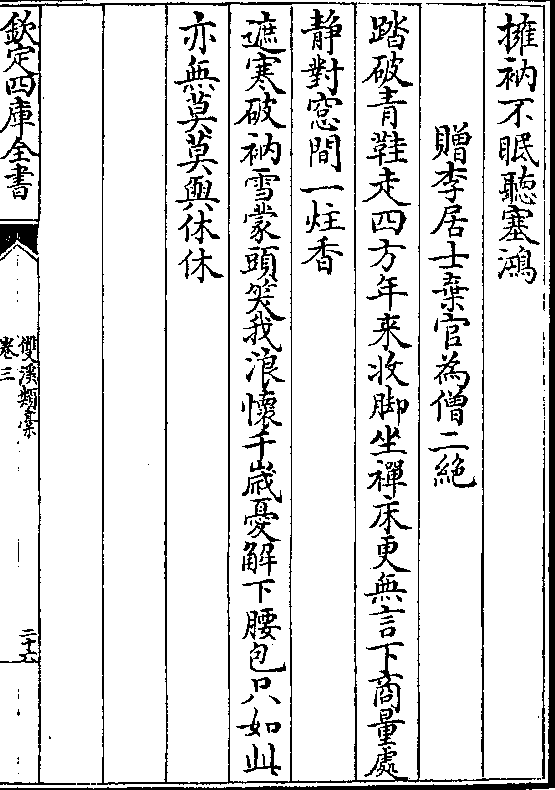 擁衲不眠聽塞鴻
贈李居士棄官為僧二絶
踏破青鞋走四方年來收脚坐禪床更無言下商量處
静對窓間一炷香
遮寒破衲雪蒙頭笑我浪懷千嵗憂解下腰包只如此
亦無莫莫與休休
欽定四庫全書
雙溪類稾
卷三
二十六